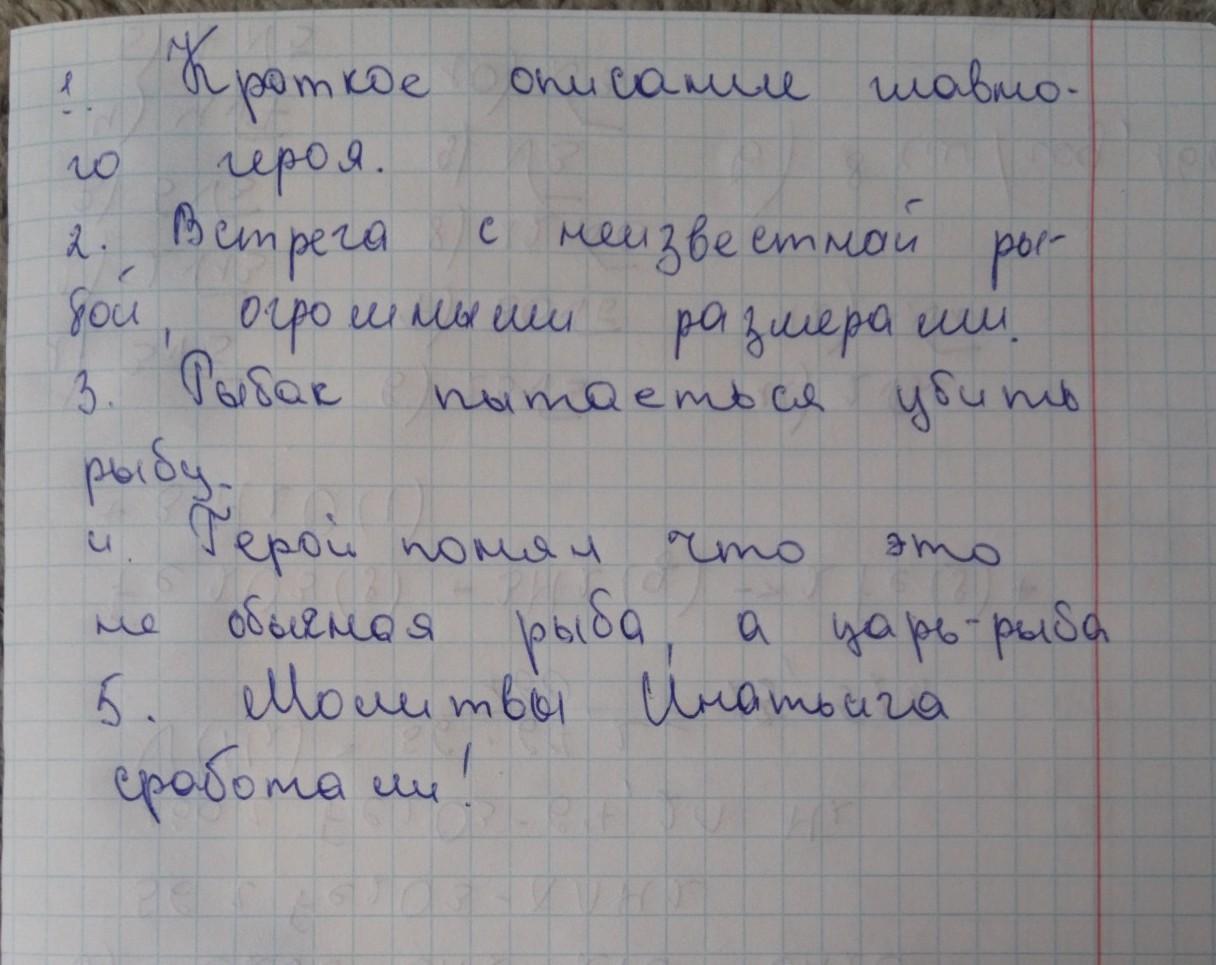 1. Краткое описание главно-
го героя.
2. Встреча с неизвестной ры-
бой, огромными размерами.
3. Рыбак пытаеться убить
рыбу.
4. Герой понял что это
не обычная рыба, а царь-рыба
5. Молитвы Инатьича
сработали!